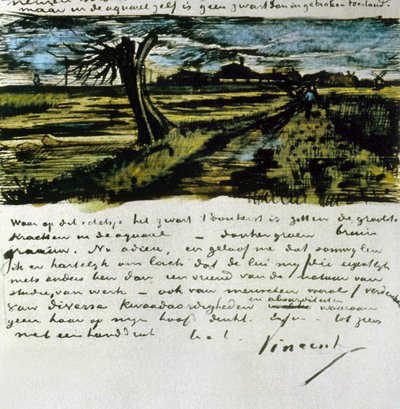 maar in de aquarel zelf is geen zwart dan in gebroken toestand.
Waar op dit schetsje het zwart 't donkerst is zitten de grootste
krachten in de aquarel — donkergroen bruin
graauw. Nu adieu, en geloof me dat soms
ik er hartelijk om lach dat de lui mij die eigentlijk
niets anders ben dan een vriend van de natuur van
studie, van werk — ook van menschen vooral
van diverse kwaadaardigheden en absurditeiten waaraan
geen haar op mijn hoofd denkt. Enfin — tot ziens
met een handdruk t. à t.
Vincent